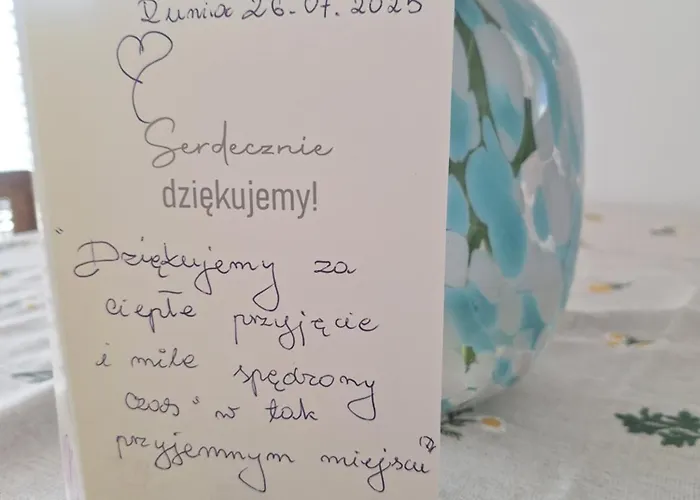 Dunia 26.07.2025
Serdecznie
dziękujemy!
"Dziękujemy za
ciepłe przyjęcie
i miłe spędzony
czas" w tak
przyjemnym miejscu